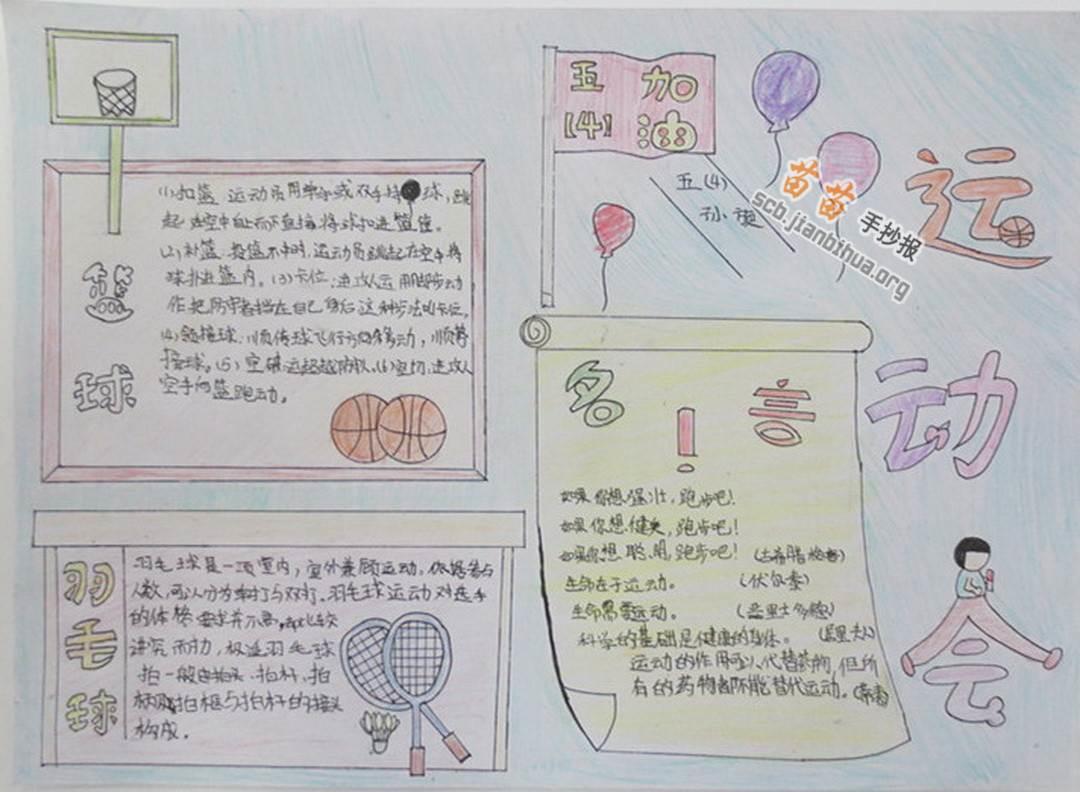 运动会
五 加
(4) 油
五(4)
孙
苗苗手抄报
scb.jianbihua.org
篮球
(1)扣篮 运动员用单手或双手持球,跳
起 在空中自上而下直接将球扣进篮筐。
(2)补篮:投篮不中时,运动员跳起在空中将
球补进篮内。(3)卡位:进攻人运用脚步动
作把防守者挡在自己身后这种步法叫卡位。
(4)领接球:顺传球飞行方向移动,顺势
接球。(5)突破:运球超越防守人。(6)空切:进攻人
空手向篮跑动。
羽毛球
羽毛球是一项室内,室外兼顾运动。依据参与
人数,可以分为单打与双打。羽毛球运动对选手
的体格要求并不高,却比较
讲究耐力,极适羽毛球
拍一般由拍头、拍杆、拍
柄及拍框与拍杆的接头
构成。
名言!
如果你想强壮,跑步吧!
如果你想健美,跑步吧!
如果你想聪明,跑步吧!(古希腊格言)
生命在于运动。(伏尔泰)
生命需要运动。(亚里士多德)
科学的基础是健康的身体。(居里夫人)
运动的作用可以代替药物,但所
有的药物都不能替代运动。